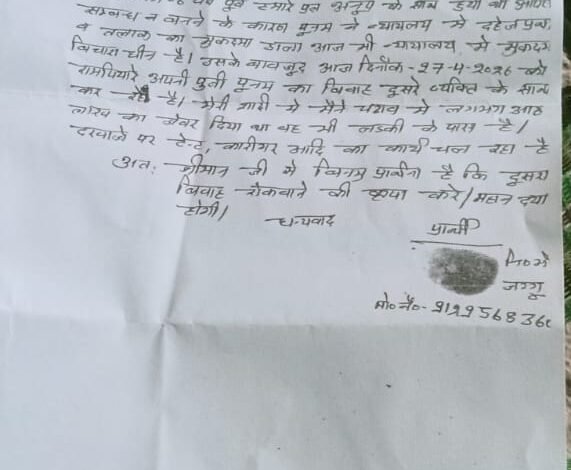 पूर्व हमारे पुत्र अनूप के साथ हुयी थी आपसी
सम्बन्ध न बनने के कारण पूनम ने न्यायालय में दहेज प्रथा
व तलाक का मुकदमा डाला आज भी न्यायालय में मुकदमा
विचाराधीन है। उसके बावजूद आज दिनाँक-27-4-2026 को
रामपियारे अपनी पुत्री पूनम का विवाह दुसरे व्यक्ति के साथ
कर रहे है। मेरी शादी में मैंने चढाव में लगभग आठ
लाख का जेवर दिया था वह भी लडकी के पास है।
दरवाजे पर टेन्ट, कारीगर आदि का कार्य चल रहा है
अतः श्रीमान जी से विनम्र प्रार्थना है कि दुसरा
विवाह रोकवाने की कृपा करे। महान दया
होगी।
धन्यवाद
प्रार्थी
नि०अँ
जग्गू
मो० नँ०- 9129568 36